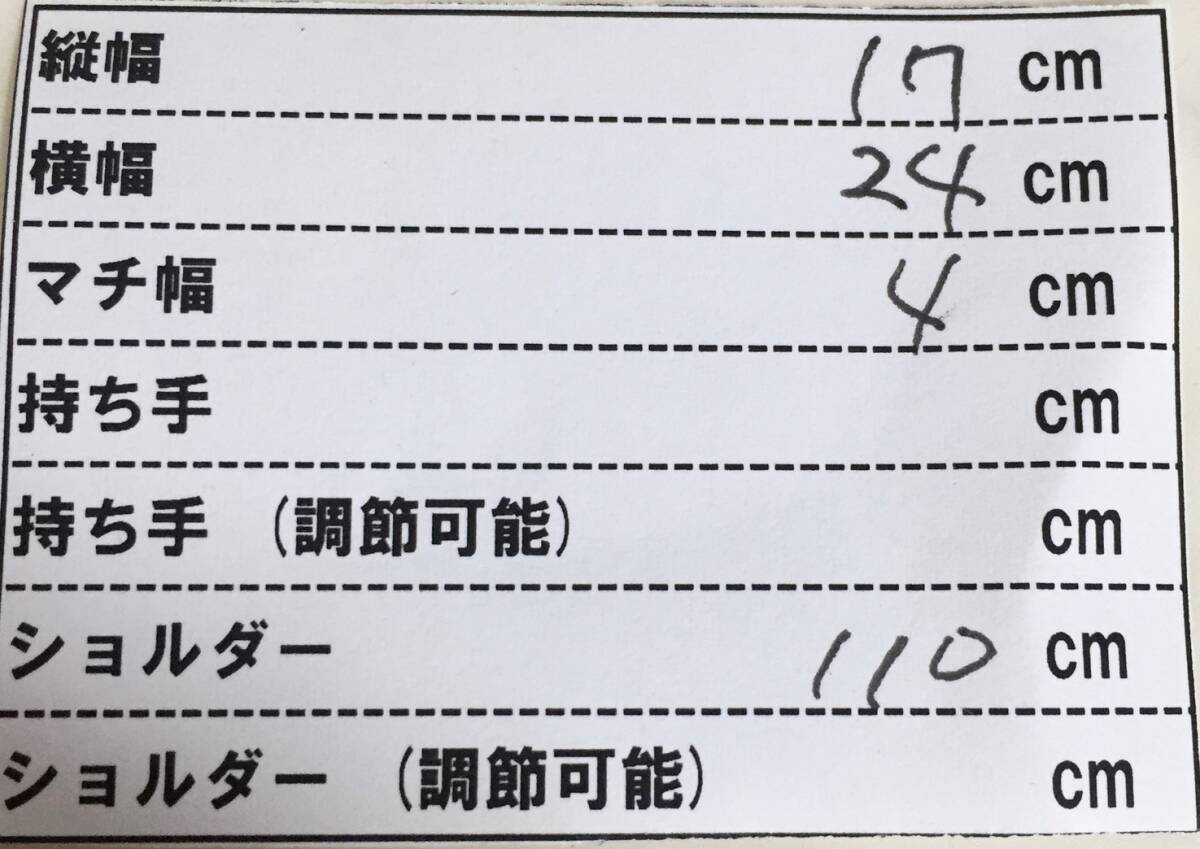 縦幅 17 cm
横幅 24 cm
マチ幅 4 cm
持ち手 cm
持ち手 (調節可能) cm
ショルダー 110 cm
ショルダー (調節可能) cm